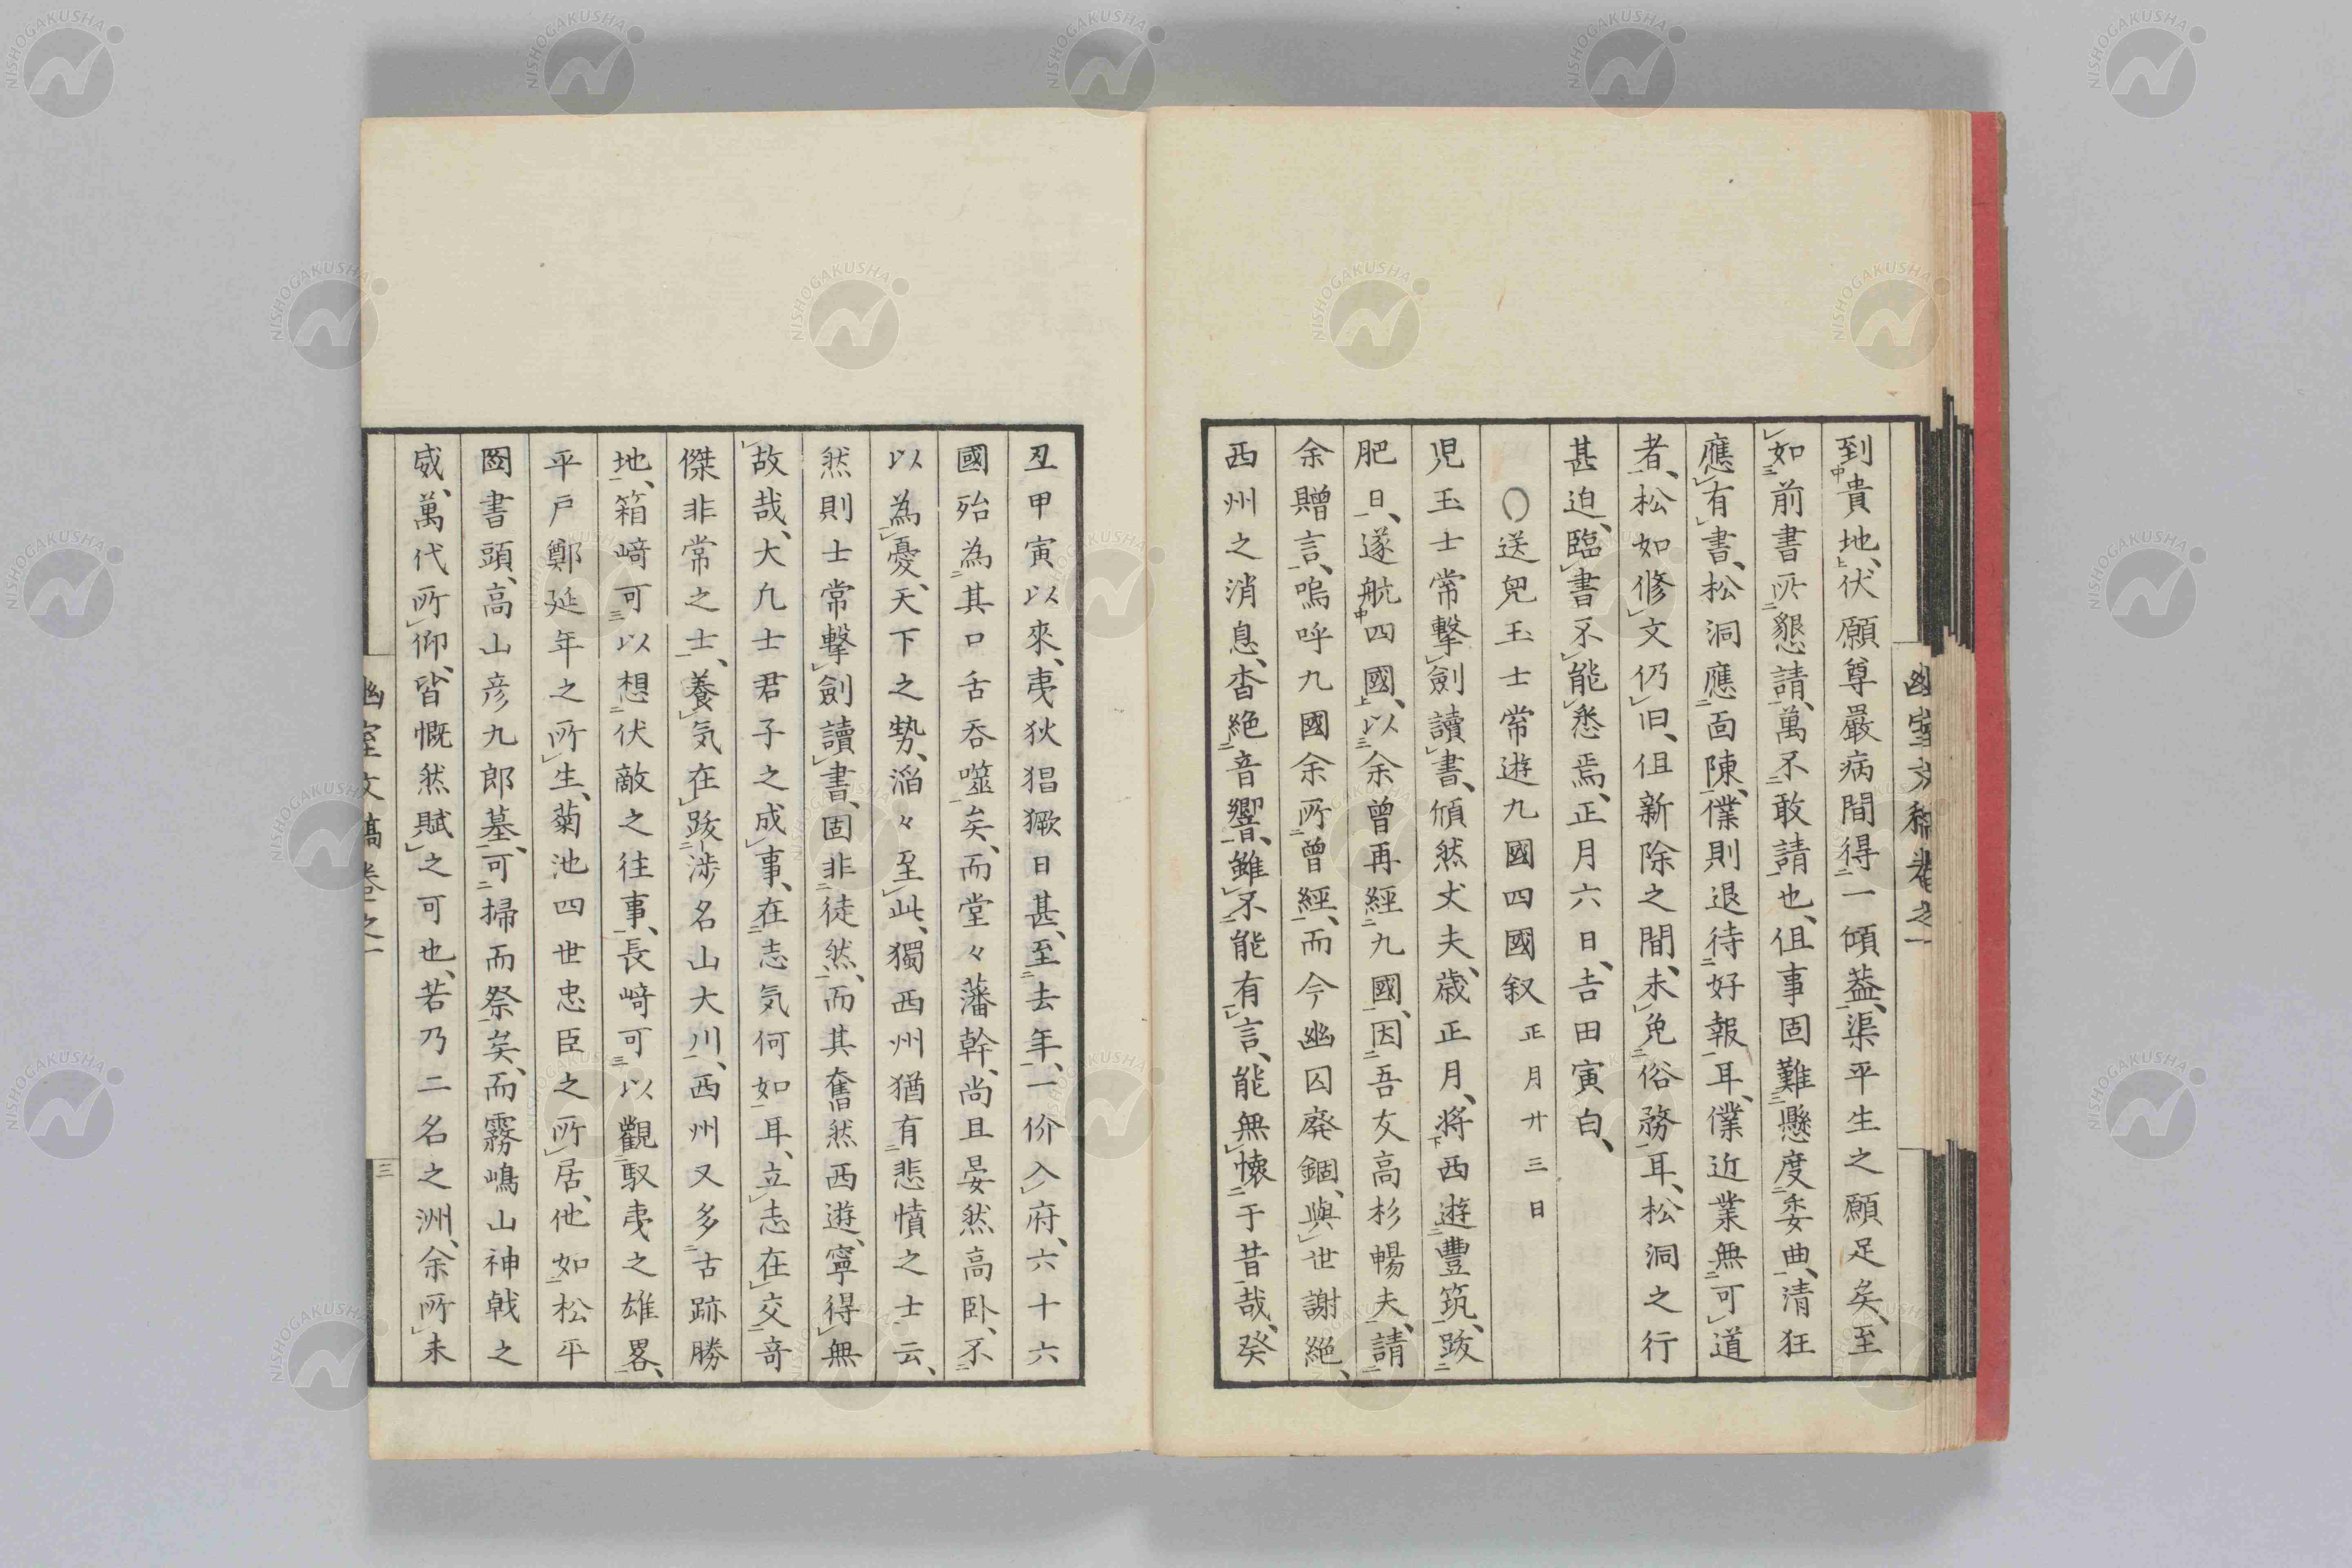 幽室文稿卷之一
到貴地、伏願尊嚴病間得一傾葢、渠平生之願足矣、至
如前書所懇請、萬不敢請也、但事固難懸度委曲、清狂
應有書、松洞應面陳、僕則退待好報耳、僕近業無可道
者、松如修文仍旧、但新除之間、未免俗務耳、松洞之行
甚迫、臨書不能悉焉、正月六日、吉田寅白、
〇送兒玉士常遊九國四國叙 正月廿三日
児玉士常撃劍讀書、頎然丈夫、歳正月、将西遊豐筑、跋
肥日、遂航四國、以余曾再經九國、因吾友高杉暢夫、請
余贈言、嗚呼九國余所曾經、而今幽囚廃錮、與世謝絶、
西州之消息、杳絶音響、雖不能有言、能無懐于昔哉、癸
丑甲寅以來、夷狄猖獗日甚、至去年、一价入府、六十六
國殆為其口舌呑噬矣、而堂々藩幹、尚且晏然高卧、不
以為憂、天下之勢、滔々至此、獨西州猶有悲憤之士云、
然則士常撃劍讀書、固非徒然、而其奮然西遊、寧得無
故哉、大凢士君子之成事、在志気何如耳、立志在交奇
傑非常之士、養気在跋渉名山大川、西州又多古跡勝
地、箱﨑可以想伏敵之往事、長﨑可以觀馭夷之雄畧、
平戸鄭延年之所生、菊池四世忠臣之所居、他如松平
圖書頭、高山彦九郎墓、可掃而祭矣、而霧嶋山神戟之
威、萬代所仰、皆慨然賦之可也、若乃二名之洲、余所未
幽室文稿卷之一
三